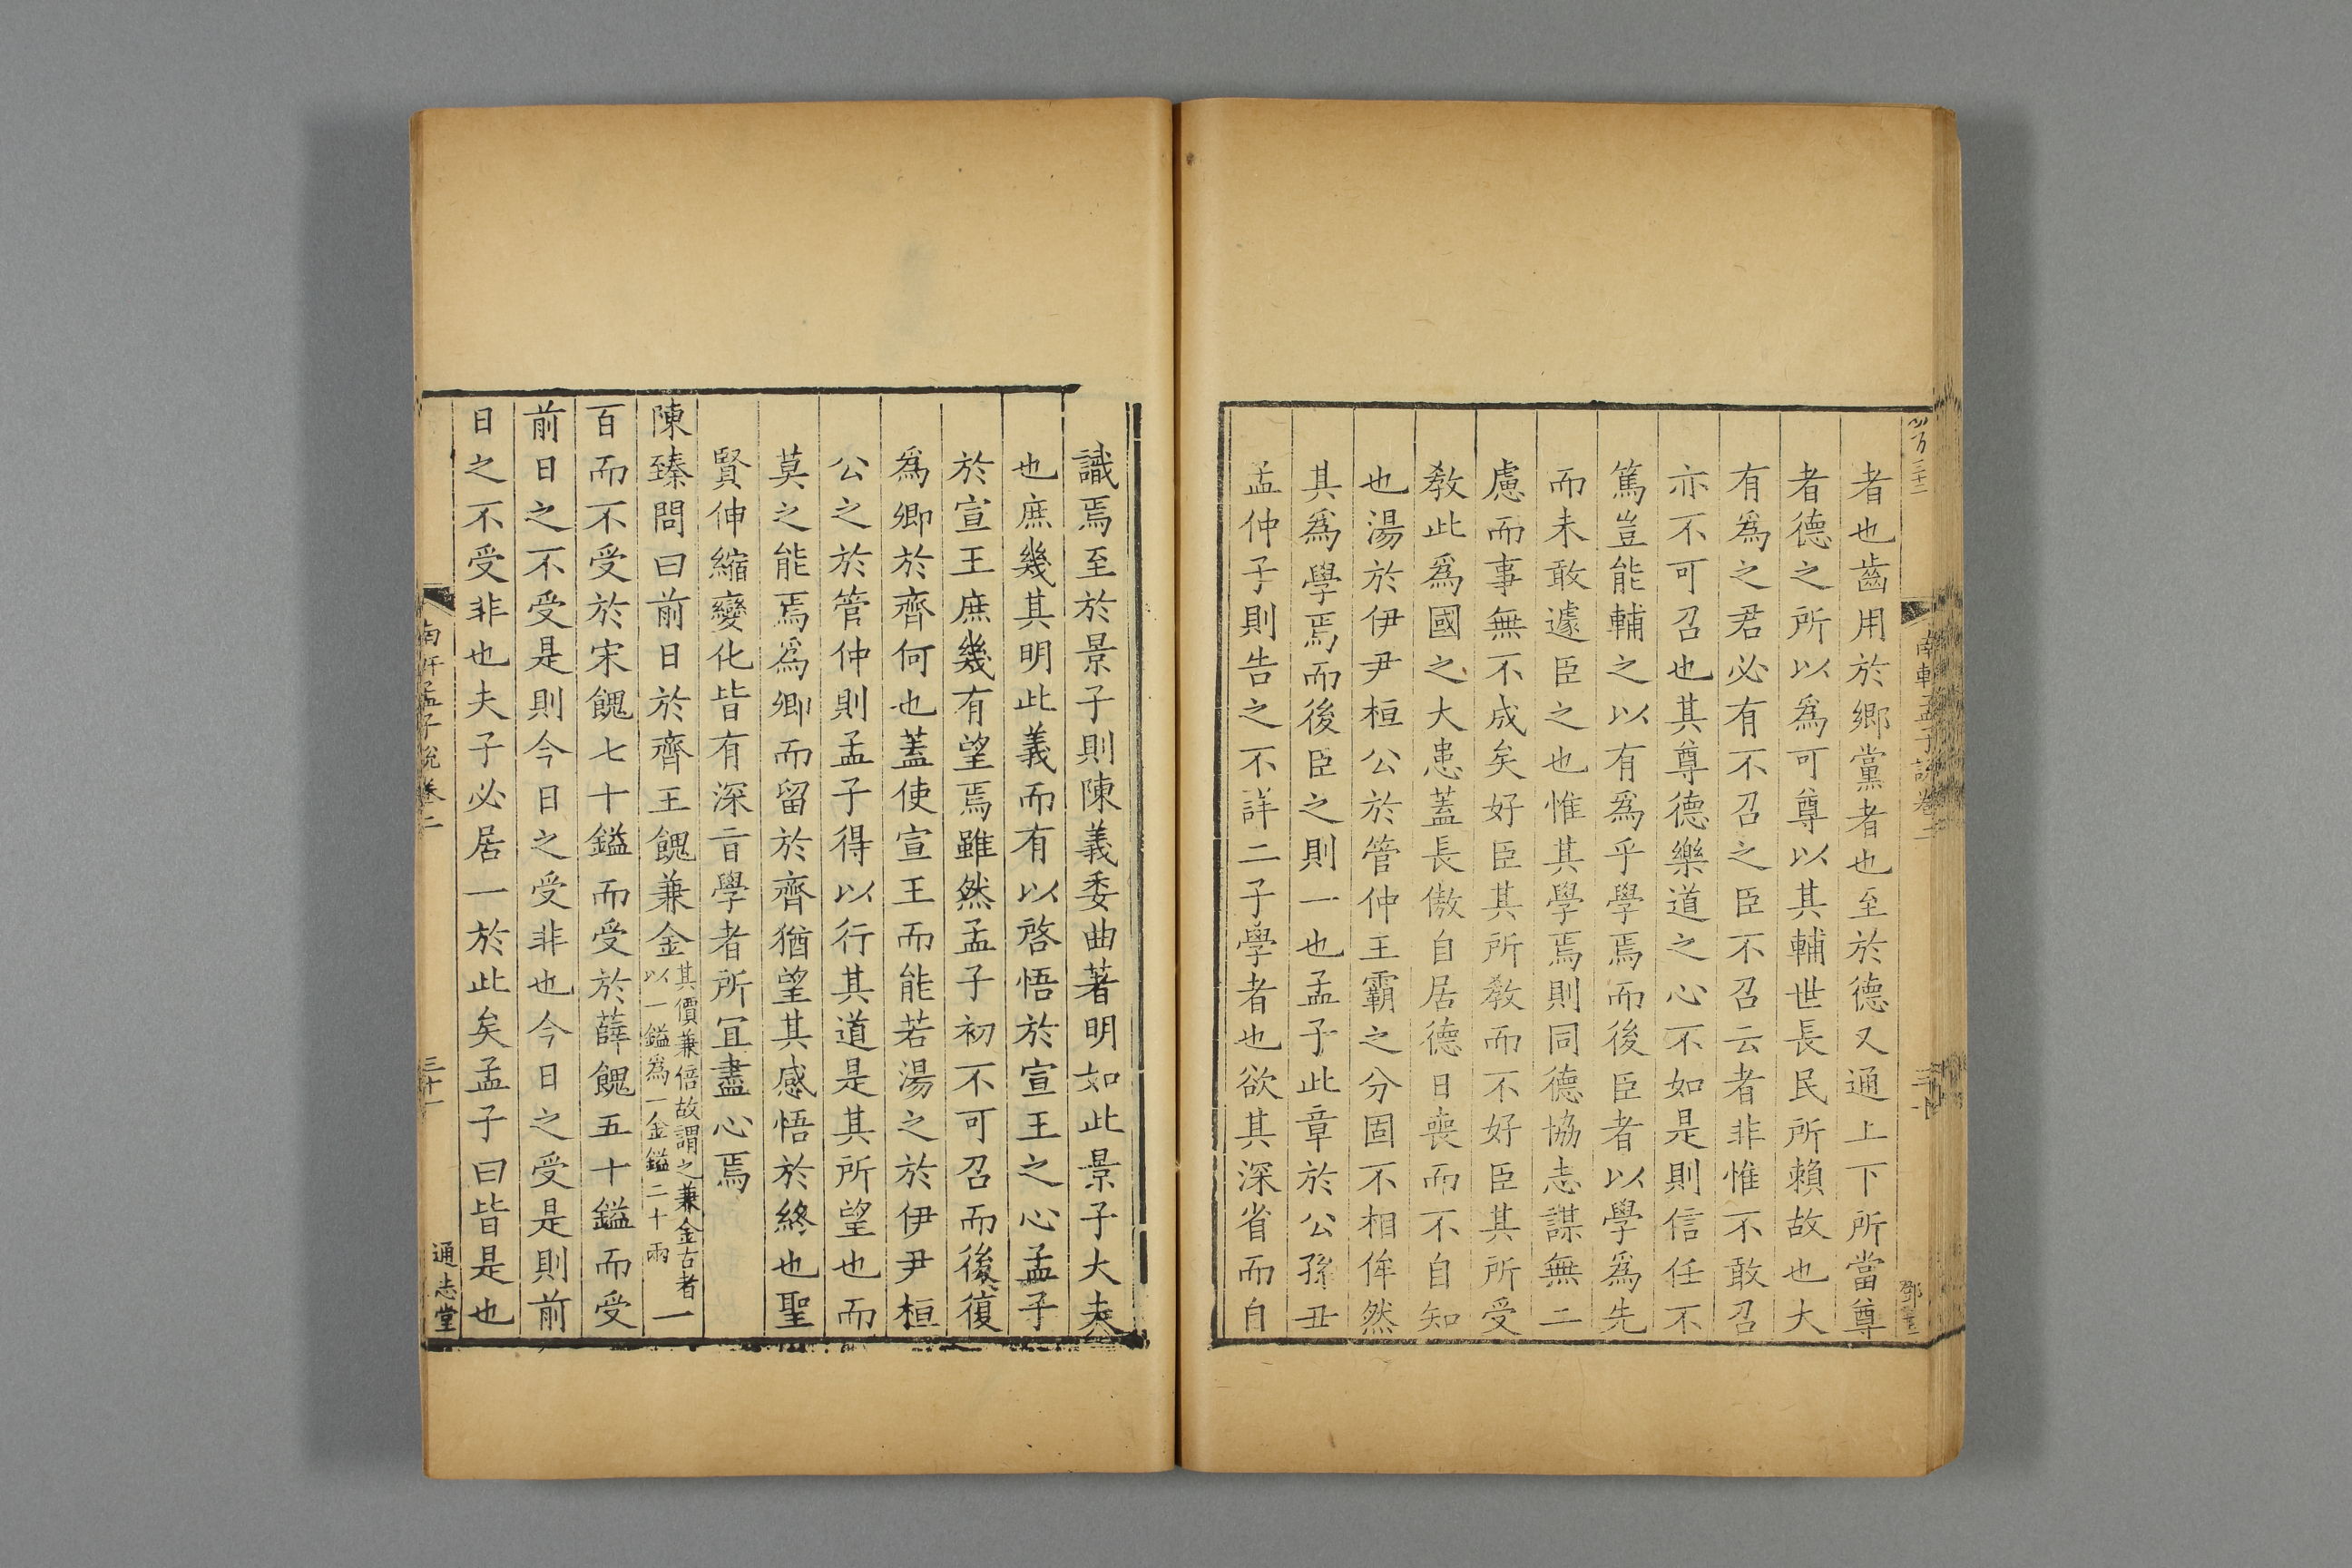 南軒孟子說卷二
者也齒用於鄉黨者也至於德又通上下所當尊
者德之所以爲可尊以其輔世長民所賴故也大
有爲之君必有不召之臣不召云者非惟不敢召
亦不可召也其尊德樂道之心不如是則信任不
篤豈能輔之以有爲乎學焉而後臣者以學爲先
而未敢遽臣之也惟其學焉則同德協志謀無二
慮而事無不成矣好臣其所敎而不好臣其所受
敎此爲國之大患蓋長傲自居德日喪而不自知
也湯於伊尹桓公於管仲王霸之分固不相侔然
其爲學焉而後臣之則一也孟子此章於公孫丑
孟仲子則告之不詳二子學者也欲其深省而自
識焉至於景子則陳義委曲著明如此景子大夫
也庶幾其明此義而有以啓悟於宣王之心孟子
於宣王庶幾有望焉雖然孟子初不可召而後復
爲卿於齊何也蓋使宣王而能若湯之於伊尹桓
公之於管仲則孟子得以行其道是其所望也而
莫之能焉爲卿而留於齊猶望其感悟於終也聖
賢伸縮變化皆有深㫖學者所宜盡心焉
陳臻問曰前日於齊王餽兼金其價兼倍故謂之兼金古者以一鎰爲一金鎰二十兩一
百而不受於宋餽七十鎰而受於薛餽五十鎰而受
前日之不受是則今日之受非也今日之受是則前
日之不受非也夫子必居一於此矣孟子曰皆是也
南軒孟子說卷二
三十一
通志堂